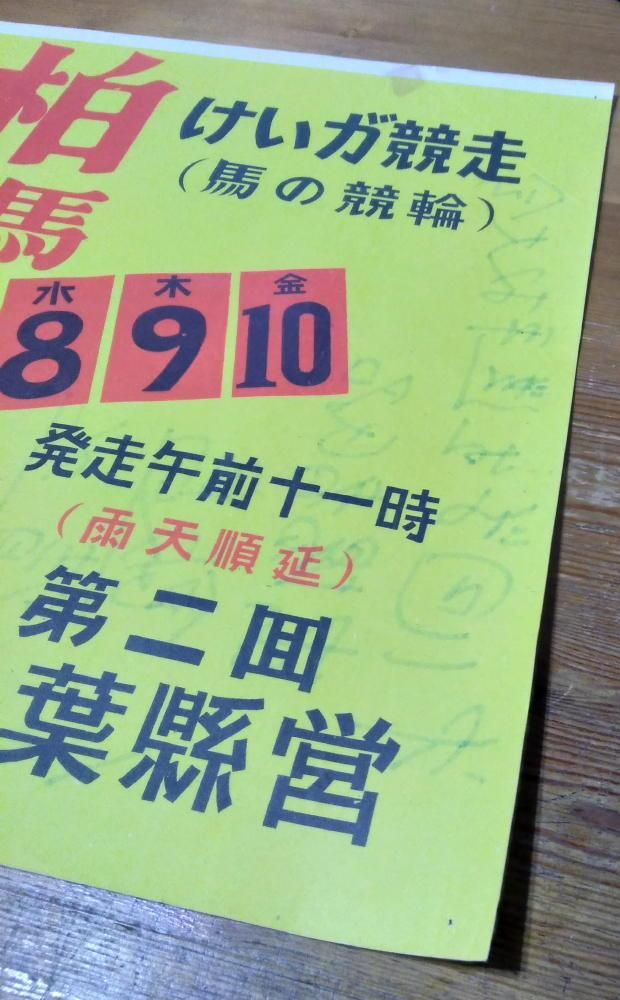 柏
馬
けいガ競走
(馬の競輪)
水 木 金
8 9 10
発走午前十一時
(雨天順延)
第二回
葉縣営